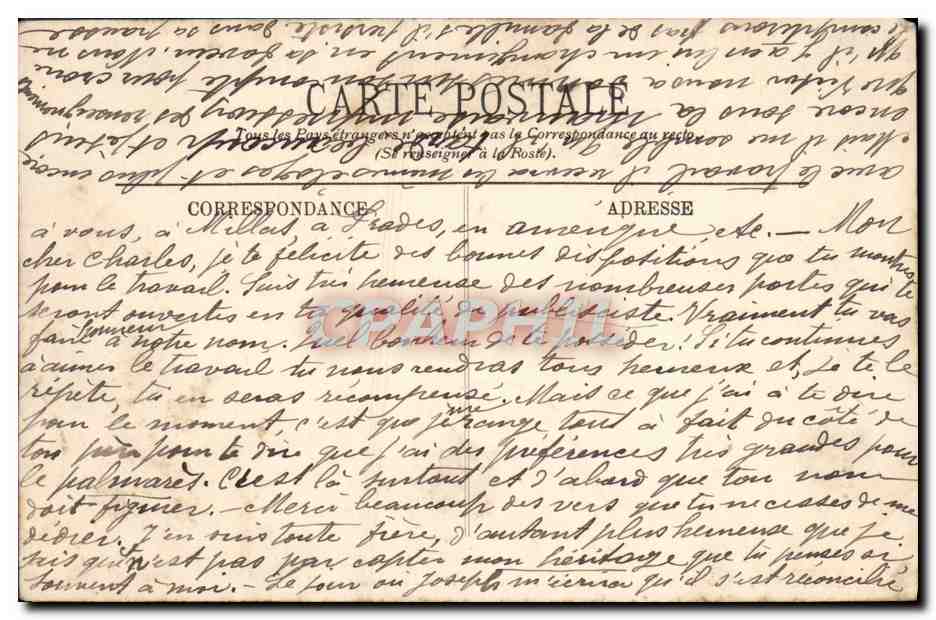 CARTE POSTALE
Tous les Pays étrangers n'acceptent pas la Correspondance au recto
(Se renseigner à la Poste).
CORRESPONDANCE
ADRESSE
à vous, à Millas, à Prades, en etc. — Mon
cher Charles, je te félicite des bonnes dispositions que tu montres
pour le travail. Suis très heureuse des nombreuses portes qui te
seront ouvertes en ta qualité de publiciste. Vraiment tu vas
faire honneur à notre nom. Quel bonheur de te posséder! Si tu continues
à aimer le travail tu nous rendras tous heureux et, je te le
répète, tu en seras récompensé. Mais ce que j'ai à te dire
pour le moment, c'est que je me range tout à fait du côté de
ton père pour te dire que j'ai des préférences très grandes pour
le palmarès. C'est là surtout et d'abord que ton nom
doit figurer. — Merci beaucoup des vers que tu ne cesses de me
dédier. J'en suis toute fière, d'autant plus heureuse que je
sais que ce n'est pas par capter mon héritage que tu penses si
souvent à moi. — Le jour où Joseph m'écrira qu'il s'est réconcilié
avec le travail il recevra les mêmes éloges et plus encore
Mais il me semble
encore dans la
que Victor nous a pour croire
qu'il y a eu bien un changement en sa faveur. Nous ne
le compterions pas de la famille s'il persiste dans sa
CPAPHIL